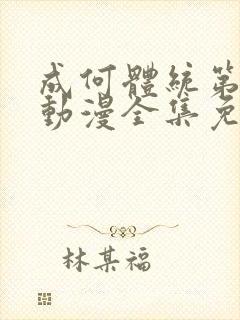 成何體統第
動漫全集免
林某福